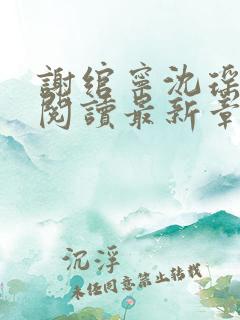 謝綰寧沈瑤
閱讀最新章
沉浮
未经同意禁止转载